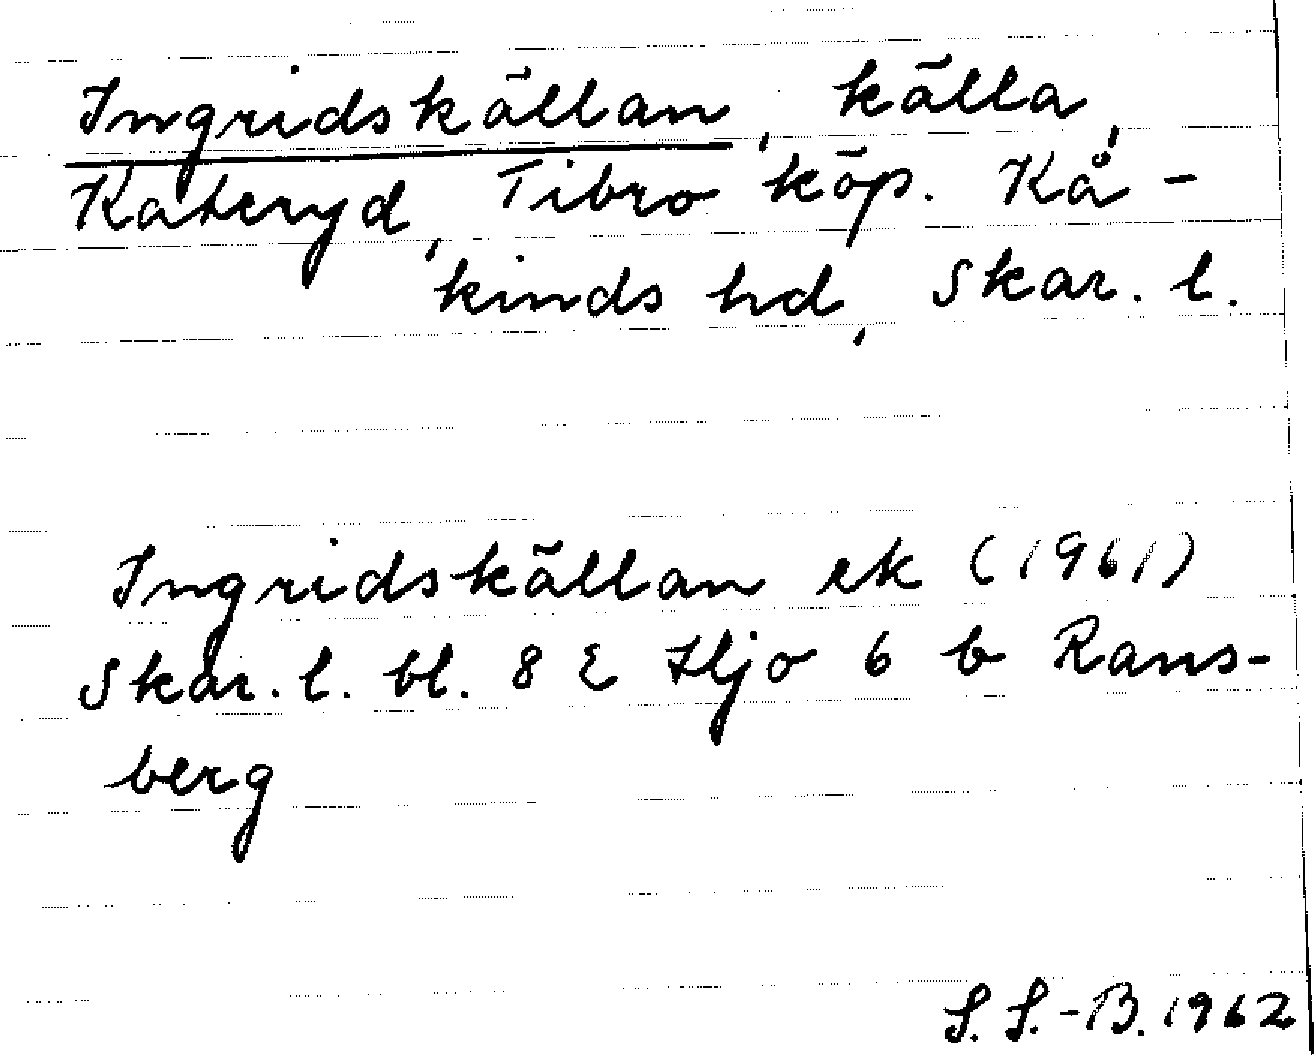 Ingridskällan, källa,
Kateryd, Tibro köp. Kå-
kinds hd, Skar. l.
Ingridskällan ek (1961)
Skar. l. bl. 8 E Hjo 6 b Rans-
berg
S. S.-B. 1962